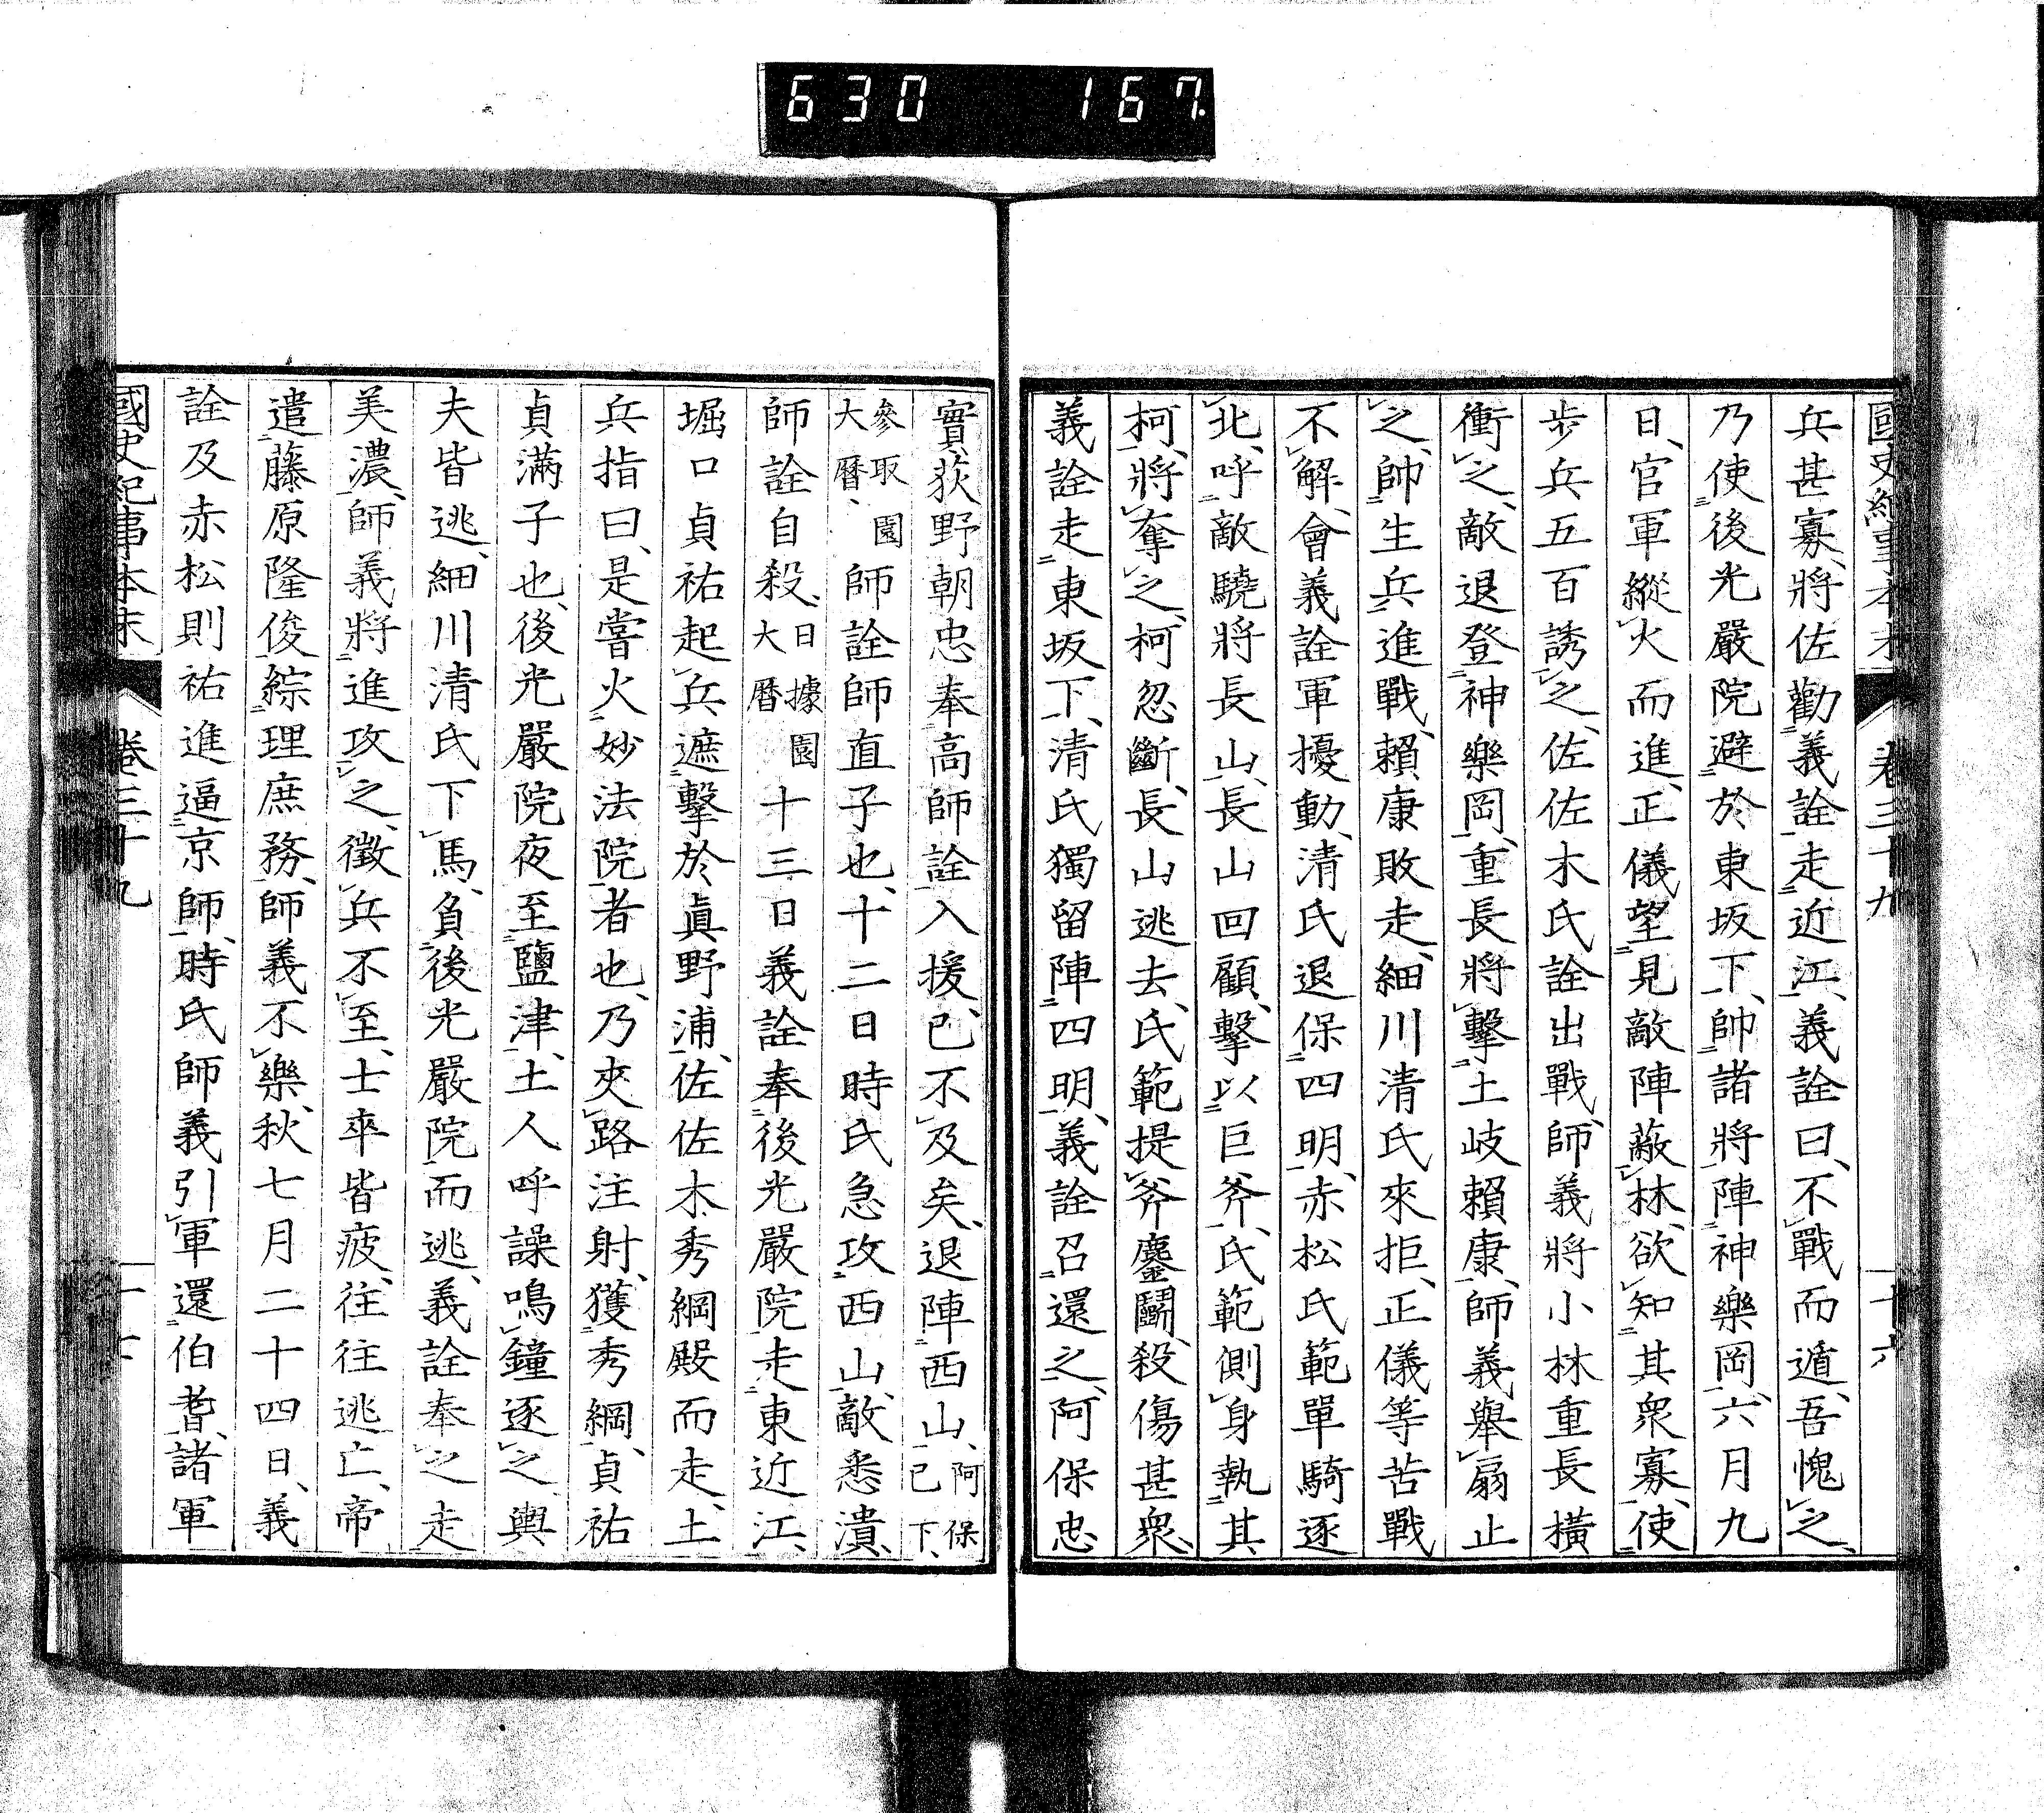 630 167.
國史紀事本末 卷三十九 十六
兵甚寡、將佐勸義詮走近江、義詮曰、不戰而遁、吾愧之、
乃使後光嚴院避於東坂下、帥諸將陣神樂岡、六月九
日、官軍縱火而進、正儀望見敵陣蔽林、欲知其衆寡、使
步兵五百誘之、佐佐木氏詮出戰、師義將小林重長橫
衝之、敵退登神樂岡、重長將擊土岐賴康、師義舉扇止
之、帥生兵進戰、賴康敗走、細川清氏來拒、正儀等苦戰
不解、會義詮軍擾動、清氏退保四明、赤松氏範單騎逐
北、呼敵驍將長山、長山回顧、擊以巨斧、氏範側身執其
柯、將奪之、柯忽斷、長山逃去、氏範提斧鏖鬭、殺傷甚衆、
義詮走東坂下、清氏獨留陣四明、義詮召還之、阿保忠
實、荻野朝忠奉高師詮入援、已不及矣、退陣西山、阿保已下、
參取園大曆、師詮師直子也、十二日時氏急攻西山、敵悉潰、
師詮自殺、日據園大曆十三日義詮奉後光嚴院走東近江、
堀口貞祐起兵遮擊於眞野浦、佐佐木秀綱殿而走、土
兵指曰、是嘗火妙法院者也、乃夾路注射、獲秀綱、貞祐
貞滿子也、後光嚴院夜至鹽津、土人呼譟鳴鐘逐之、輿
夫皆逃、細川清氏下馬、負後光嚴院而逃、義詮奉之走
美濃、師義將進攻之、徵兵不至、士卒皆疲、往往逃亡、帝
遣藤原隆俊綜理庶務、師義不樂、秋七月二十四日、義
詮及赤松則祐進逼京師、時氏師義引軍還伯耆、諸軍
國史紀事本末 卷三十九